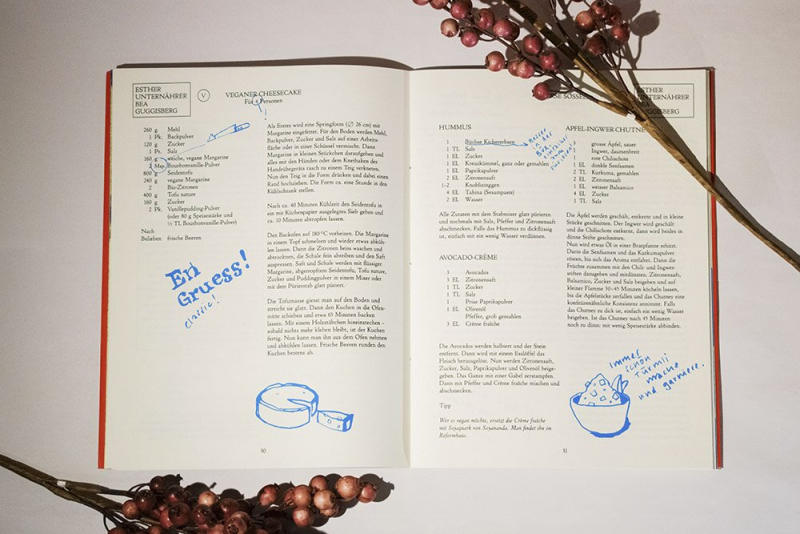 ESTHER
UNTERNÄHRER
BEA
GUGGISBERG
V
VEGANER CHEESECAKE
Für Personen
260 g Mehl
1 Pk. Backpulver
120 g Zucker
1 Pr. Salz
160 g weiche, vegane Margarine
2 Msp. Bourbonvanille-Pulver
800 g Seidentofu
240 g vegane Margarine
2 Bio-Zitronen
400 g Tofu nature
160 g Zucker
2 Pk. Vanillepudding-Pulver
(oder 80 g Speisestärke und
½ TL Bourbonvanille-Pulver)
Nach
Belieben frische Beeren
En
Gruess!
classic!
Als Erstes wird eine Springform (∅ 26 cm) mit
Margarine eingefettet. Für den Boden werden Mehl,
Backpulver, Zucker und Salz auf einer Arbeits-
fläche oder in einer Schüssel vermischt. Dann
Margarine in kleinen Stückchen daraufgeben und
alles mit den Händen oder dem Knethaken des
Handrührgeräts rasch zu einem Teig verkneten.
Nun den Teig in die Form drücken und dabei einen
Rand hochziehen. Die Form ca. eine Stunde in den
Kühlschrank stellen.
Nach ca. 40 Minuten Kühlzeit den Seidentofu in
ein mit Küchenpapier ausgelegtes Sieb geben und
ca. 10 Minuten abtropfen lassen.
Den Backofen auf 180 °C vorheizen. Die Margarine
in einem Topf schmelzen und wieder etwas abküh-
len lassen. Dann die Zitronen heiss waschen und
abtrocknen, die Schale fein abreiben und den Saft
auspressen. Saft und Schale werden mit flüssiger
Margarine, abgetropftem Seidentofu, Tofu nature,
Zucker und Puddingpulver in einem Mixer oder
mit dem Pürierstab glatt püriert.
Die Tofumasse giesst man auf den Boden und
streicht sie glatt. Dann den Kuchen in die Ofen-
mitte schieben und etwa 65 Minuten backen
lassen. Mit einem Holzstäbchen hineinstechen –
sobald nichts mehr kleben bleibt, ist der Kuchen
fertig. Nun kann man ihn aus dem Ofen nehmen
und abkühlen lassen. Frische Beeren runden des
Kuchen bestens ab.
HUMMUS
1 Büchse Kichererbsen
1 TL Salz
1 EL Zucker
1 EL Kreuzkümmel, ganz oder gemahlen
1 EL Paprikapulver
2 EL Zitronensaft
1–2 Knoblizinggen
4 EL Tahina (Sesampaste)
2 EL Wasser
Alle Zutaten mit dem Stabmixer glatt pürieren
und nochmals mit Salz, Pfeffer und Zitronensaft
abschmecken. Falls das Hummus zu dickflüssig
ist, einfach mit ein wenig Wasser verdünnen.
AVOCADO-CRÈME
3 Avocados
1 EL Zitronensaft
1 TL Zucker
1 TL Salz
1 Prise Paprikapulver
1 EL Olivenöl
Pfeffer, grob gemahlen
3 EL Crème fraîche
Die Avocados werden halbiert und der Stein
entfernt. Dann wird mit einem Esslöffel das
Fleisch herausgelöst. Nun werden Zitronensaft,
Zucker, Salz, Paprikapulver und Olivenöl beige-
geben. Das Ganze mit einer Gabel zerstampfen.
Dann mit Pfeffer und Crème fraîche mischen und
abschmecken.
Tipp
Wer es vegan möchte, ersetzt die Crème fraîche
mit Sojapark von Soyananda. Man findet ihn im
Reformhaus.
ESTHER
UNTERNÄHRER
BEA
GUGGISBERG
APFEL-INGWER CHUTNEY
grosse Äpfel, sauer
Ingwer, daumenbreit
rote Chilischote
EL dunkle Senfsamen
TL Kurkuma, gemahlen
EL Zitronensaft
EL weisser Balsamico
EL Zucker
TL Salz
Die Äpfel werden geschält, entkernt und in kleine
Stücke geschnitten. Der Ingwer wird geschält
und die Chilischote entkernt, dann wird beides in
dünne Streifen geschnitten.
Nun wird etwas Öl in einer Bratpfanne erhitzt.
Darin die Senfsamen und das Kurkumapulver
rösten, bis sich das Aroma entfaltet. Dann die
Früchte zusammen mit den Chili- und Ingwer-
stiften damageben und mitdünsten. Zitronensaft,
Balsamico, Zucker und Salz beigeben und auf
kleiner Flamme 30–45 Minuten köcheln lassen,
bis die Apfelstücke zerfallen und das Chutney eine
konfitüreähnliche Konsistenz annimmt. Falls
das Chutney zu dick ist, einfach ein wenig Wasser
beigeben. Ist das Chutney nach 45 Minuten
noch zu dünn: mit wenig Speisestärke abbinden.
immer
schön
Türmli
mache
und garniere.